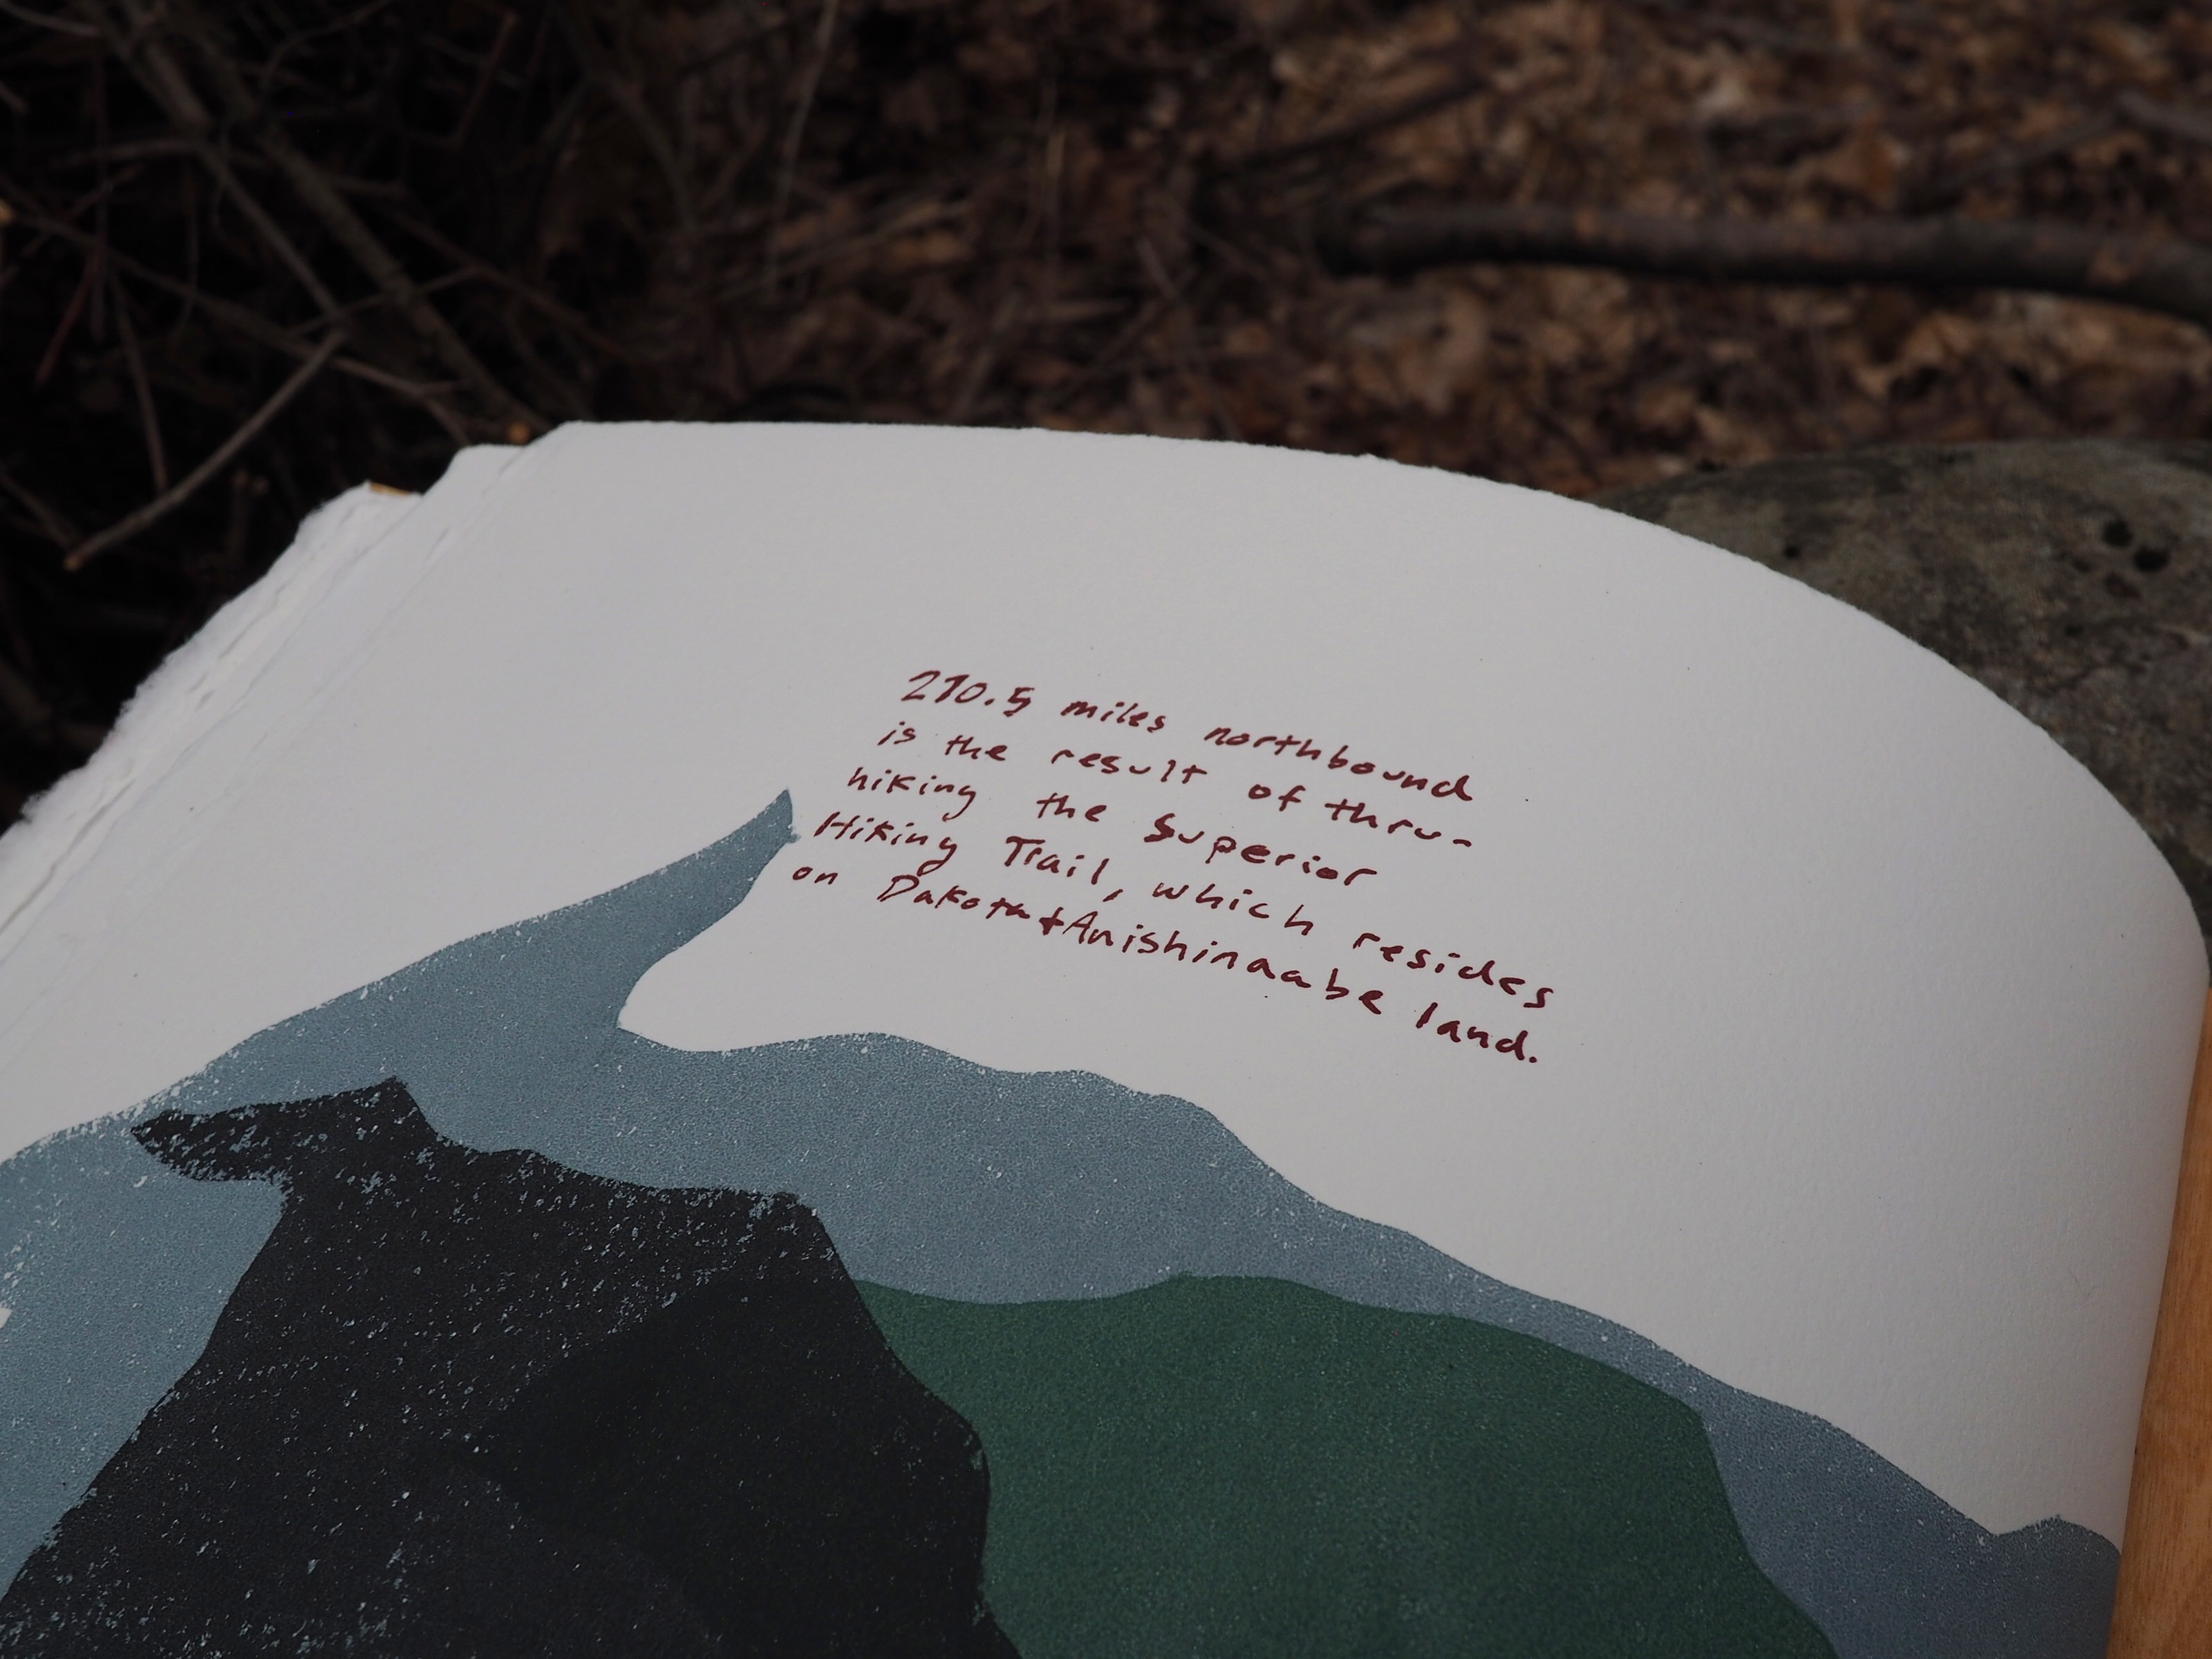 270.5 miles northbound
is the result of thru-
hiking the Superior
Hiking Trail, which resides
on Dakota+Anishinaabe land.